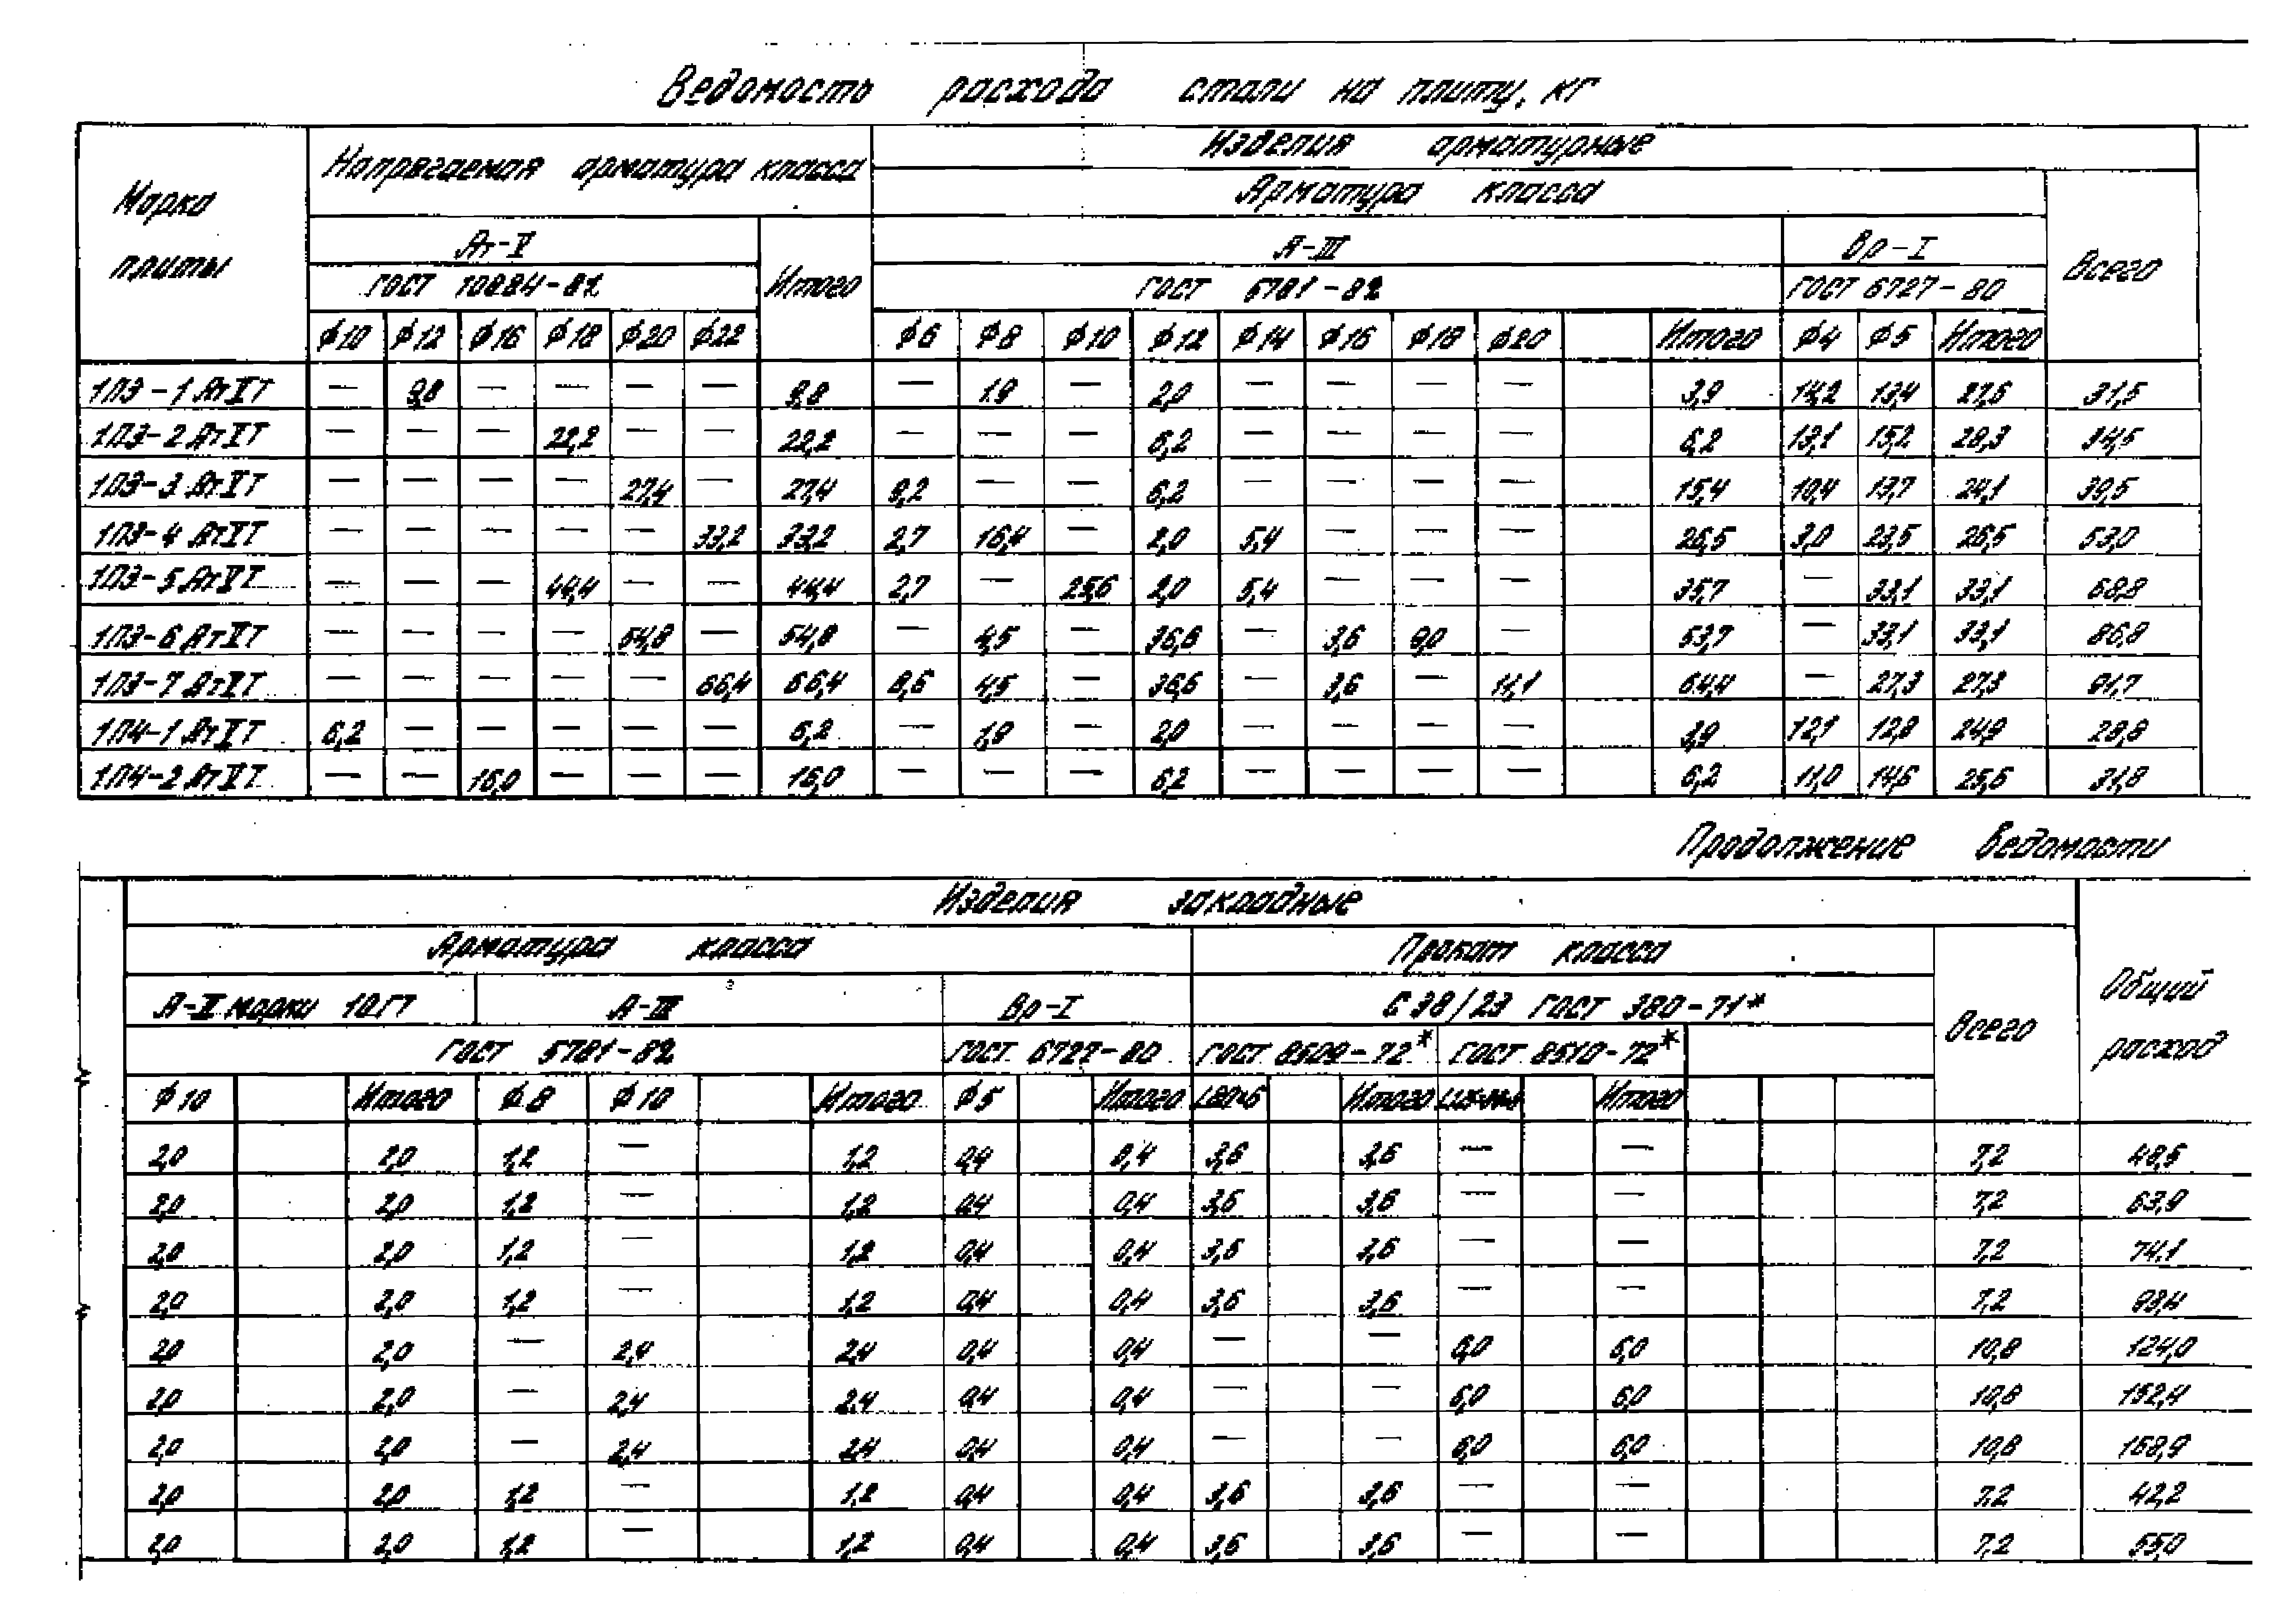 Ведомость расхода стали на плиту, кг
Марка плиты
Напрягаемая арматура класса
Изделия арматурные
Арматура класса
Ат-V
Итого
А-III
Вр-I
Всего
ГОСТ 10884-81
ГОСТ 5781-82
ГОСТ 6727-80
ф10 ф12 ф16 ф18 ф20 ф22 ф6 ф8 ф10 ф12 ф14 ф16 ф18 ф20 Итого ф4 ф5 Итого
1П3-1АтVТ — 9,8 — — — — 9,8 — 1,9 — 2,0 — — — — 3,9 14,2 13,4 27,6 31,5
1П3-2АтVТ — — — 22,2 — — 22,2 — — — 6,2 — — — — 6,2 13,1 15,2 28,3 34,5
1П3-3АтVТ — — — — 27,4 — 27,4 9,2 — — 6,2 — — — — 15,4 10,4 13,7 24,1 39,5
1П3-4АтVТ — — — — — 33,2 33,2 2,7 16,4 — 2,0 5,4 — — — 26,5 3,0 23,5 26,5 53,0
1П3-5АтVТ — — — 44,4 — — 44,4 2,7 — 25,6 2,0 5,4 — — — 35,7 — 33,1 33,1 68,8
1П3-6АтVТ — — — — 54,8 — 54,8 — 4,5 — 36,6 — 3,6 9,0 — 53,7 — 33,1 33,1 86,8
1П3-7АтVТ — — — — — 66,4 66,4 8,6 4,5 — 36,6 — 3,6 — 11,1 64,4 — 27,3 27,3 91,7
1П4-1АтVТ 6,2 — — — — — 6,2 — 1,9 — 2,0 — — — — 3,9 12,1 12,8 24,9 28,8
1П4-2АтVТ — — 16,0 — — — 16,0 — — — 6,2 — — — — 6,2 11,0 14,6 25,6 31,8
Продолжение ведомости
Изделия закладные
Арматура класса
Прокат класса
Всего
Общий расход
А-II марки 10ГТ
А-III
Вр-I
С38/23 ГОСТ 380-71*
ГОСТ 5781-82
ГОСТ 6727-80
ГОСТ 8509-72*
ГОСТ 8510-72*
ф10 Итого ф8 ф10 Итого ф5 Итого L80×6 Итого Итого
2,0 2,0 1,2 — 1,2 0,4 0,4 3,6 3,6 — — 7,2 48,5
2,0 2,0 1,2 — 1,2 0,4 0,4 3,6 3,6 — — 7,2 63,9
2,0 2,0 1,2 — 1,2 0,4 0,4 3,6 3,6 — — 7,2 74,1
2,0 2,0 1,2 — 1,2 0,4 0,4 3,6 3,6 — — 7,2 93,4
2,0 2,0 — 2,4 2,4 0,4 0,4 — — 6,0 6,0 10,8 124,0
2,0 2,0 — 2,4 2,4 0,4 0,4 — — 6,0 6,0 10,8 152,4
2,0 2,0 — 2,4 2,4 0,4 0,4 — — 6,0 6,0 10,8 168,9
2,0 2,0 1,2 — 1,2 0,4 0,4 3,6 3,6 — — 7,2 42,2
2,0 2,0 1,2 — 1,2 0,4 0,4 3,6 3,6 — — 7,2 55,0